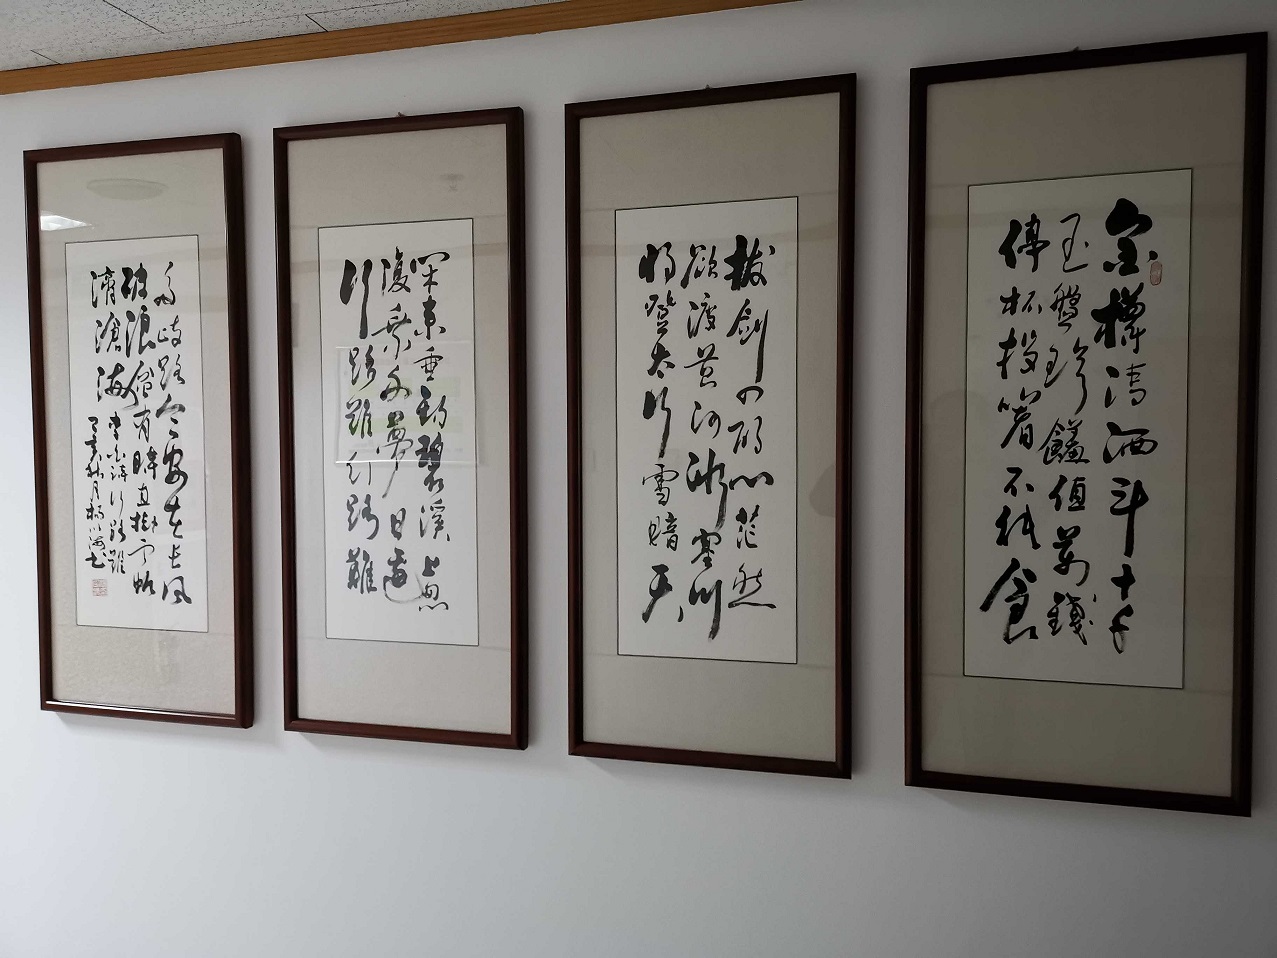 金樽清酒斗十千
玉盤珍饈值萬錢
停杯投箸不能食
拔劍四顧心茫然
欲渡黄河冰塞川
將登太行雪暗天
閑來垂釣碧溪上忽
復乘舟夢日邊
行路難行路難
多歧路今安在長風
破浪會有時直掛雲帆
濟滄海 李白詩行路難